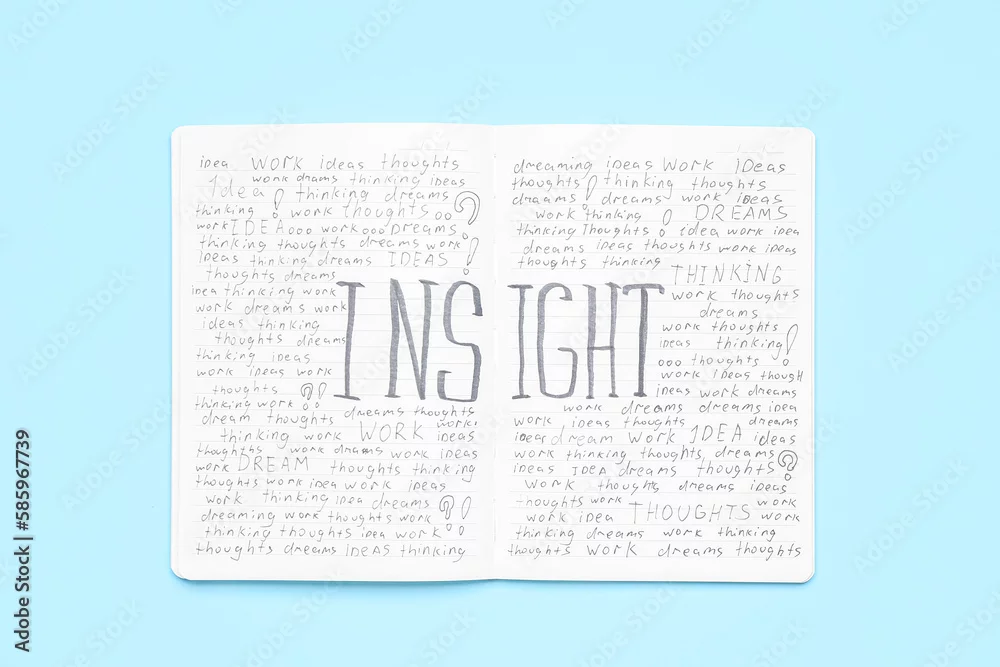 idea WORK ideas thoughts
work drams thinking ideas
Idea ! thinking dreams
thinking ! work thoughts oo ?
work IDEA ooo work ooo Dreams
thinking thoughts dreams work !
Ideas thinking dreams IDEAS
thoughts dreams
idea thinking work
work dreams work
ideas thinking
thoughts dreams
thinking ideas
work ideas work
thoughts ?!
thinking work
INS
dreams thoughts
dream thoughts work.
thinking work WORK ideas
thoughths work dreams
work ideas
work DREAM thoughts thinking
thoughts work idea work ideas
work thinking idea dreams ?!
dreaming work thoughts work
thinking thoughts idea work
thoughts dreams IDEAS thinking
dreaming ideas Work IDeas
thoughts ! thinking thoughts
draams ! dreams work ideas
work thinking ! DREAMS
thinking Thoughts ! idea work idea
dreams ideas thoughts work ideas
thoughts thinking
THINKING
work thoughts
dreams
work thoughts
ideas thinking !
ooo thoughts
work Ideas though
ideas work dreams
IGHT
work dreams dreams idea
work ideas thoughts dreams
ideas dream Work IDEA ideas
work thinking thoughts, dreams
ideas IDEA dreams thoughts ?
work thoughts dreams ideas
thoughts work work
work idea THOUGHTS work
thinking dreams work thinking
thoughts work dreams thoughts
Adobe Stock | #585967739